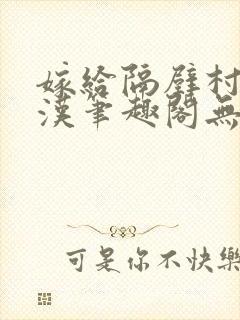 嫁給隔壁村
漢筆趣閣無
可是你不快樂